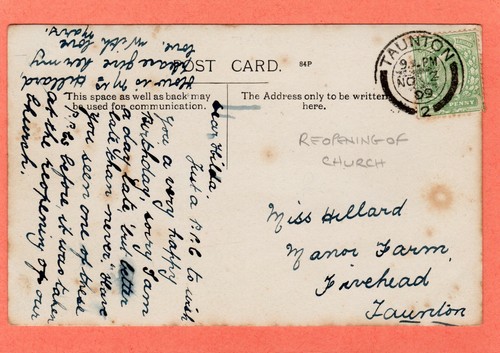 POST CARD.
84P
This space as well as back may
be used for communication.
The Address only to be written
here.
TAUNTON
9. PM
NO 2
09
2
PENNY
REOPENING OF
CHURCH
Miss Hillard
Manor Farm,
Fivehead
Taunton
Dear Hilda.
Just a P.P.C to wish
you a very happy
birthday, sorry I am
a day late, but better
late than never. Have
you seen one of these
P.P.s before it was taken
at the reopening of our
Church.
How is Mrs Hillard,
please give her my
love. With love